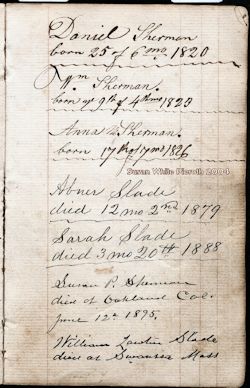 Daniel Sherman
born 25 of 6 mo. 1820
Wm Sherman.
born 9th of 4th mo 1820
Anna Sherman.
born 17th of 1826
Susan White Pieroth 2004
Abner Slade
died 12 mo 2nd 1879
Sarah Slade
died 3 mo 20th 1888
Susan P. Sherman
died at Oakland Cal.
June 12th 1895.
William Lawton Slade
died at Swansea Mass